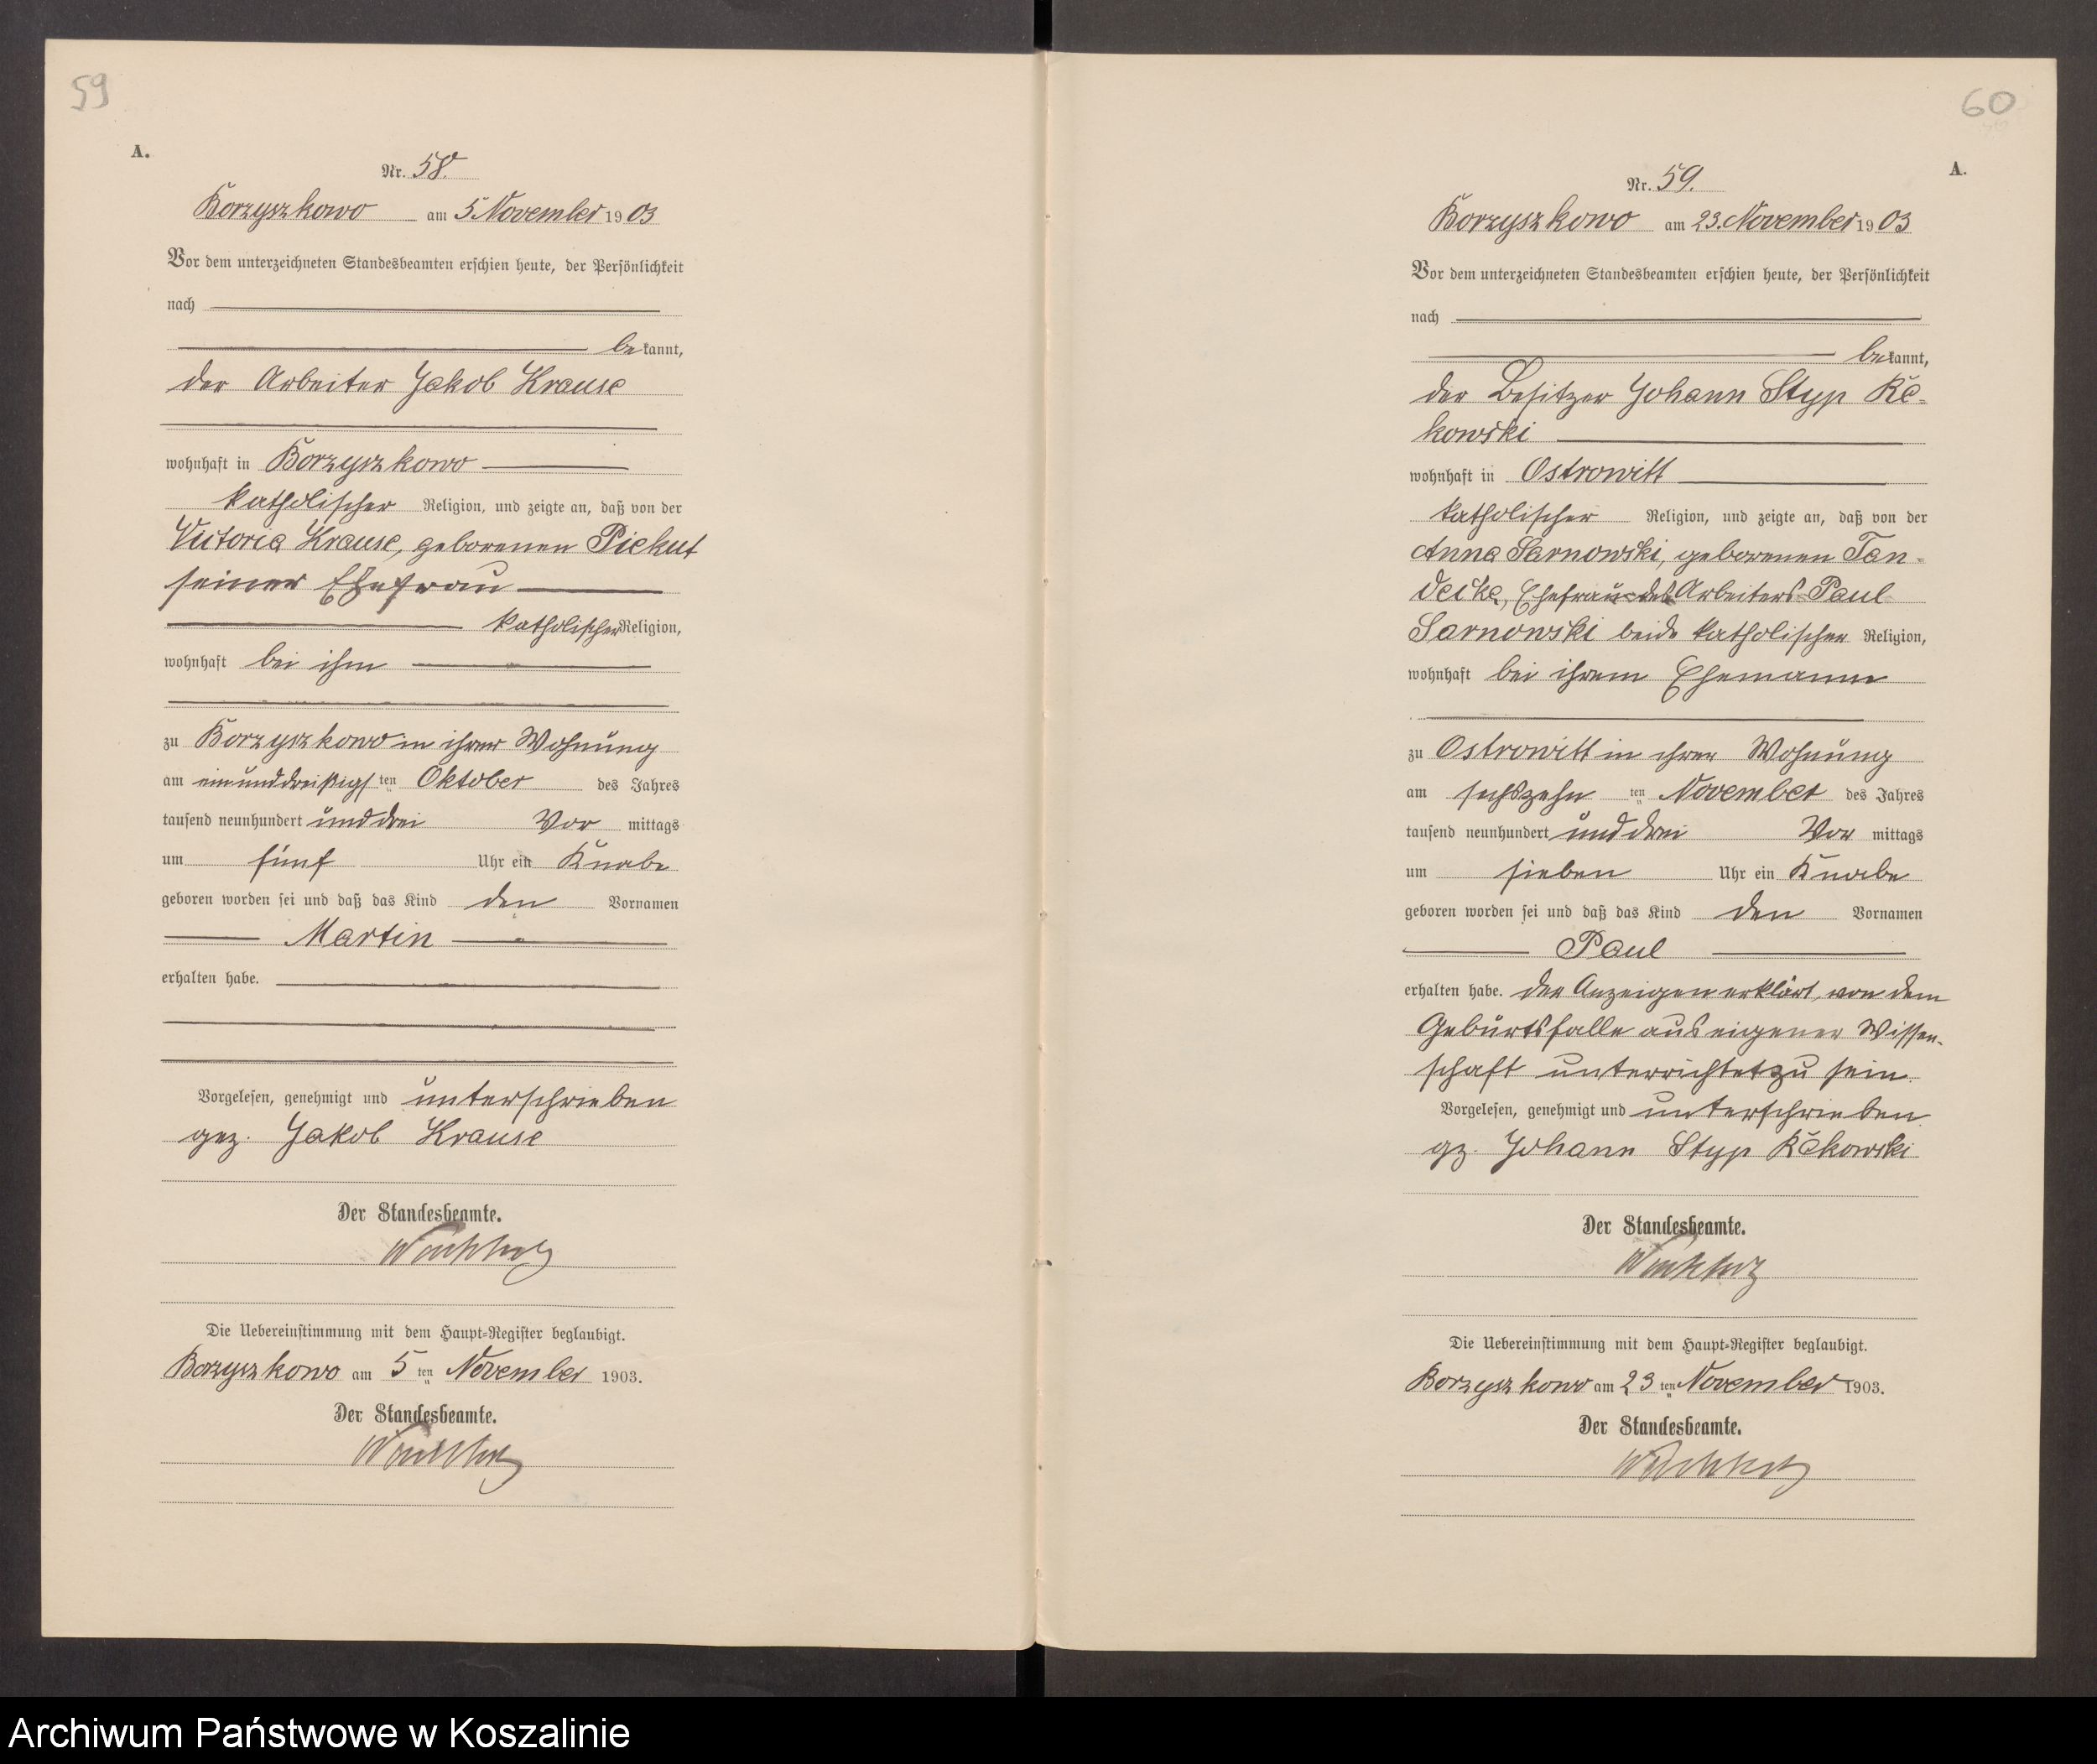 59
A.
Nr. 58.
Borzyszkowo am 5. November 1903
Vor dem unterzeichneten Standesbeamten erschien heute, der Persönlichkeit
nach
bekannt,
der Arbeiter Jakob Krause
wohnhaft in Borzyszkowo
katholischer Religion, und zeigte an, daß von der
Victoria Krause, geborenen Piekut
seiner Ehefrau
katholischer Religion,
wohnhaft bei ihm
zu Borzyszkowo in ihrer Wohnung
am einunddreißigsten Oktober des Jahres
tausend neunhundert und drei Vor mittags
um fünf Uhr ein Knabe
geboren worden sei und daß das Kind den Vornamen
Martin
erhalten habe.
Vorgelesen, genehmigt und unterschrieben
gez. Jakob Krause
Der Standesbeamte.
Die Uebereinstimmung mit dem Haupt-Register beglaubigt.
Borzyszkowo am 5 ten November 1903.
Der Standesbeamte.
60
A.
Nr. 59.
Borzyszkowo am 23. November 1903
Vor dem unterzeichneten Standesbeamten erschien heute, der Persönlichkeit
nach
bekannt,
der Besitzer Johann Styp Re-
kowski
wohnhaft in Ostrowitt
katholischer Religion, und zeigte an, daß von der
Anna Sarnowski, geborenen Tan-
decka, Ehefrau des Arbeiters Paul
Sarnowski beide katholischer Religion,
wohnhaft bei ihrem Ehemann
zu Ostrowitt in ihrer Wohnung
am sechszehn ten November des Jahres
tausend neunhundert und drei Vor mittags
um sieben Uhr ein Knabe
geboren worden sei und daß das Kind den Vornamen
Paul
erhalten habe. Der Anzeigen erklärt, von dem
Geburtsfalle aus eigener Wissen-
schaft unterrichtet zu sein.
Vorgelesen, genehmigt und unterschrieben
gz. Johann Styp Rekowski
Der Standesbeamte.
Die Uebereinstimmung mit dem Haupt-Register beglaubigt.
Borzyszkowo am 23 ten November 1903.
Der Standesbeamte.
Archiwum Państwowe w Koszalinie